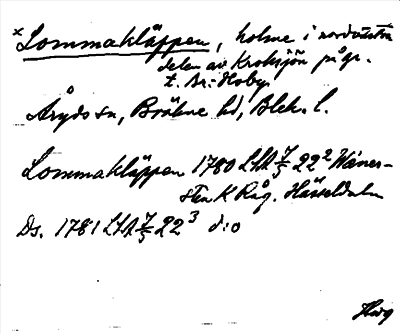 × Lommakläppen, holme i nordvästra
delen av Kroksjön på gr.
t. Br.-Hoby.
Åryds sn, Bräkne hd, Blek. l.
Lommakläppen 1780 LSA 7/5 22² Wäners-
sten K Råg. Hässeldala
Ds. 1781 LSA 7/5 22³ d:o
Hwg